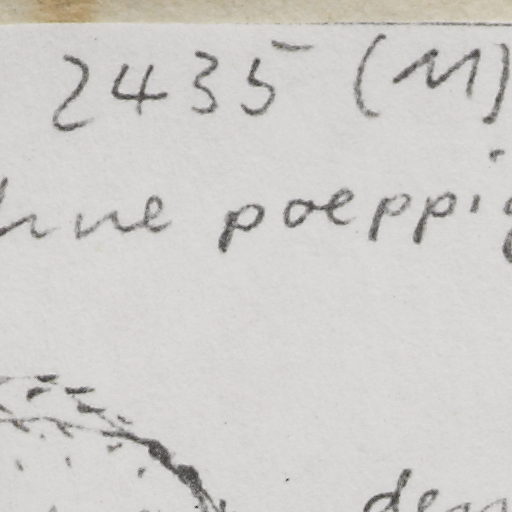 2435 (M)
hne poeppig
den